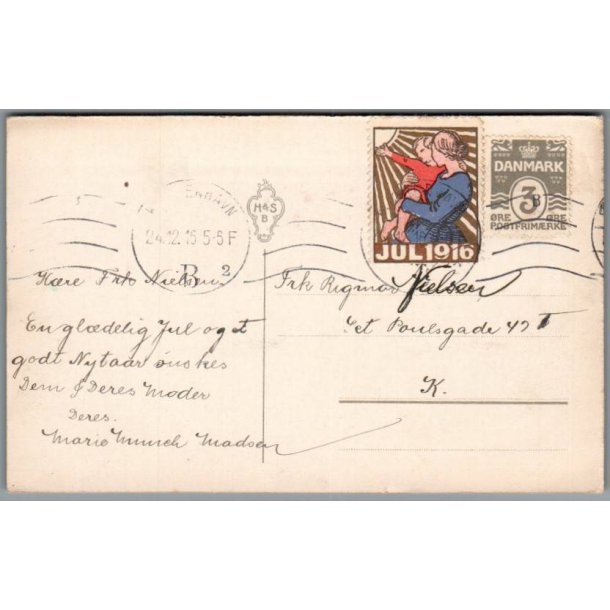 KØBENHAVN
24.12.16 5-5 F
B 2
H&S
B
JUL 1916
DANMARK
3
ØRE ØRE
POSTFRIMÆRKE
Kære Frk Nielsen
En glædelig Jul og et
godt Nytaar ønskes
Dem & Deres Moder
Deres.
Marie Munch Madsen
Frk Rigmor Nielsen
Sct Poulsgade 42
K.